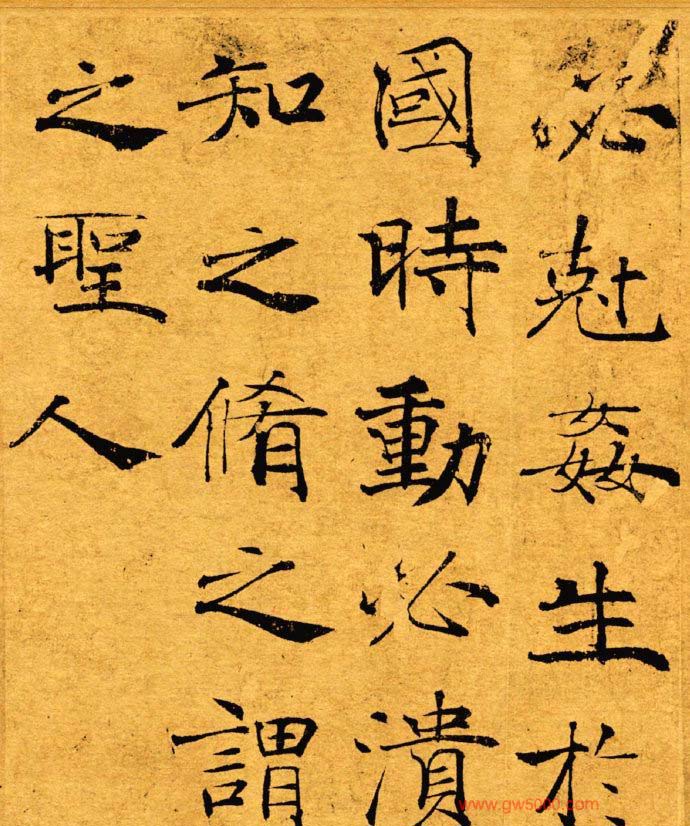 必尅姦生於
國時動必潰
知之脩之謂
之聖人
www.gw5000.com